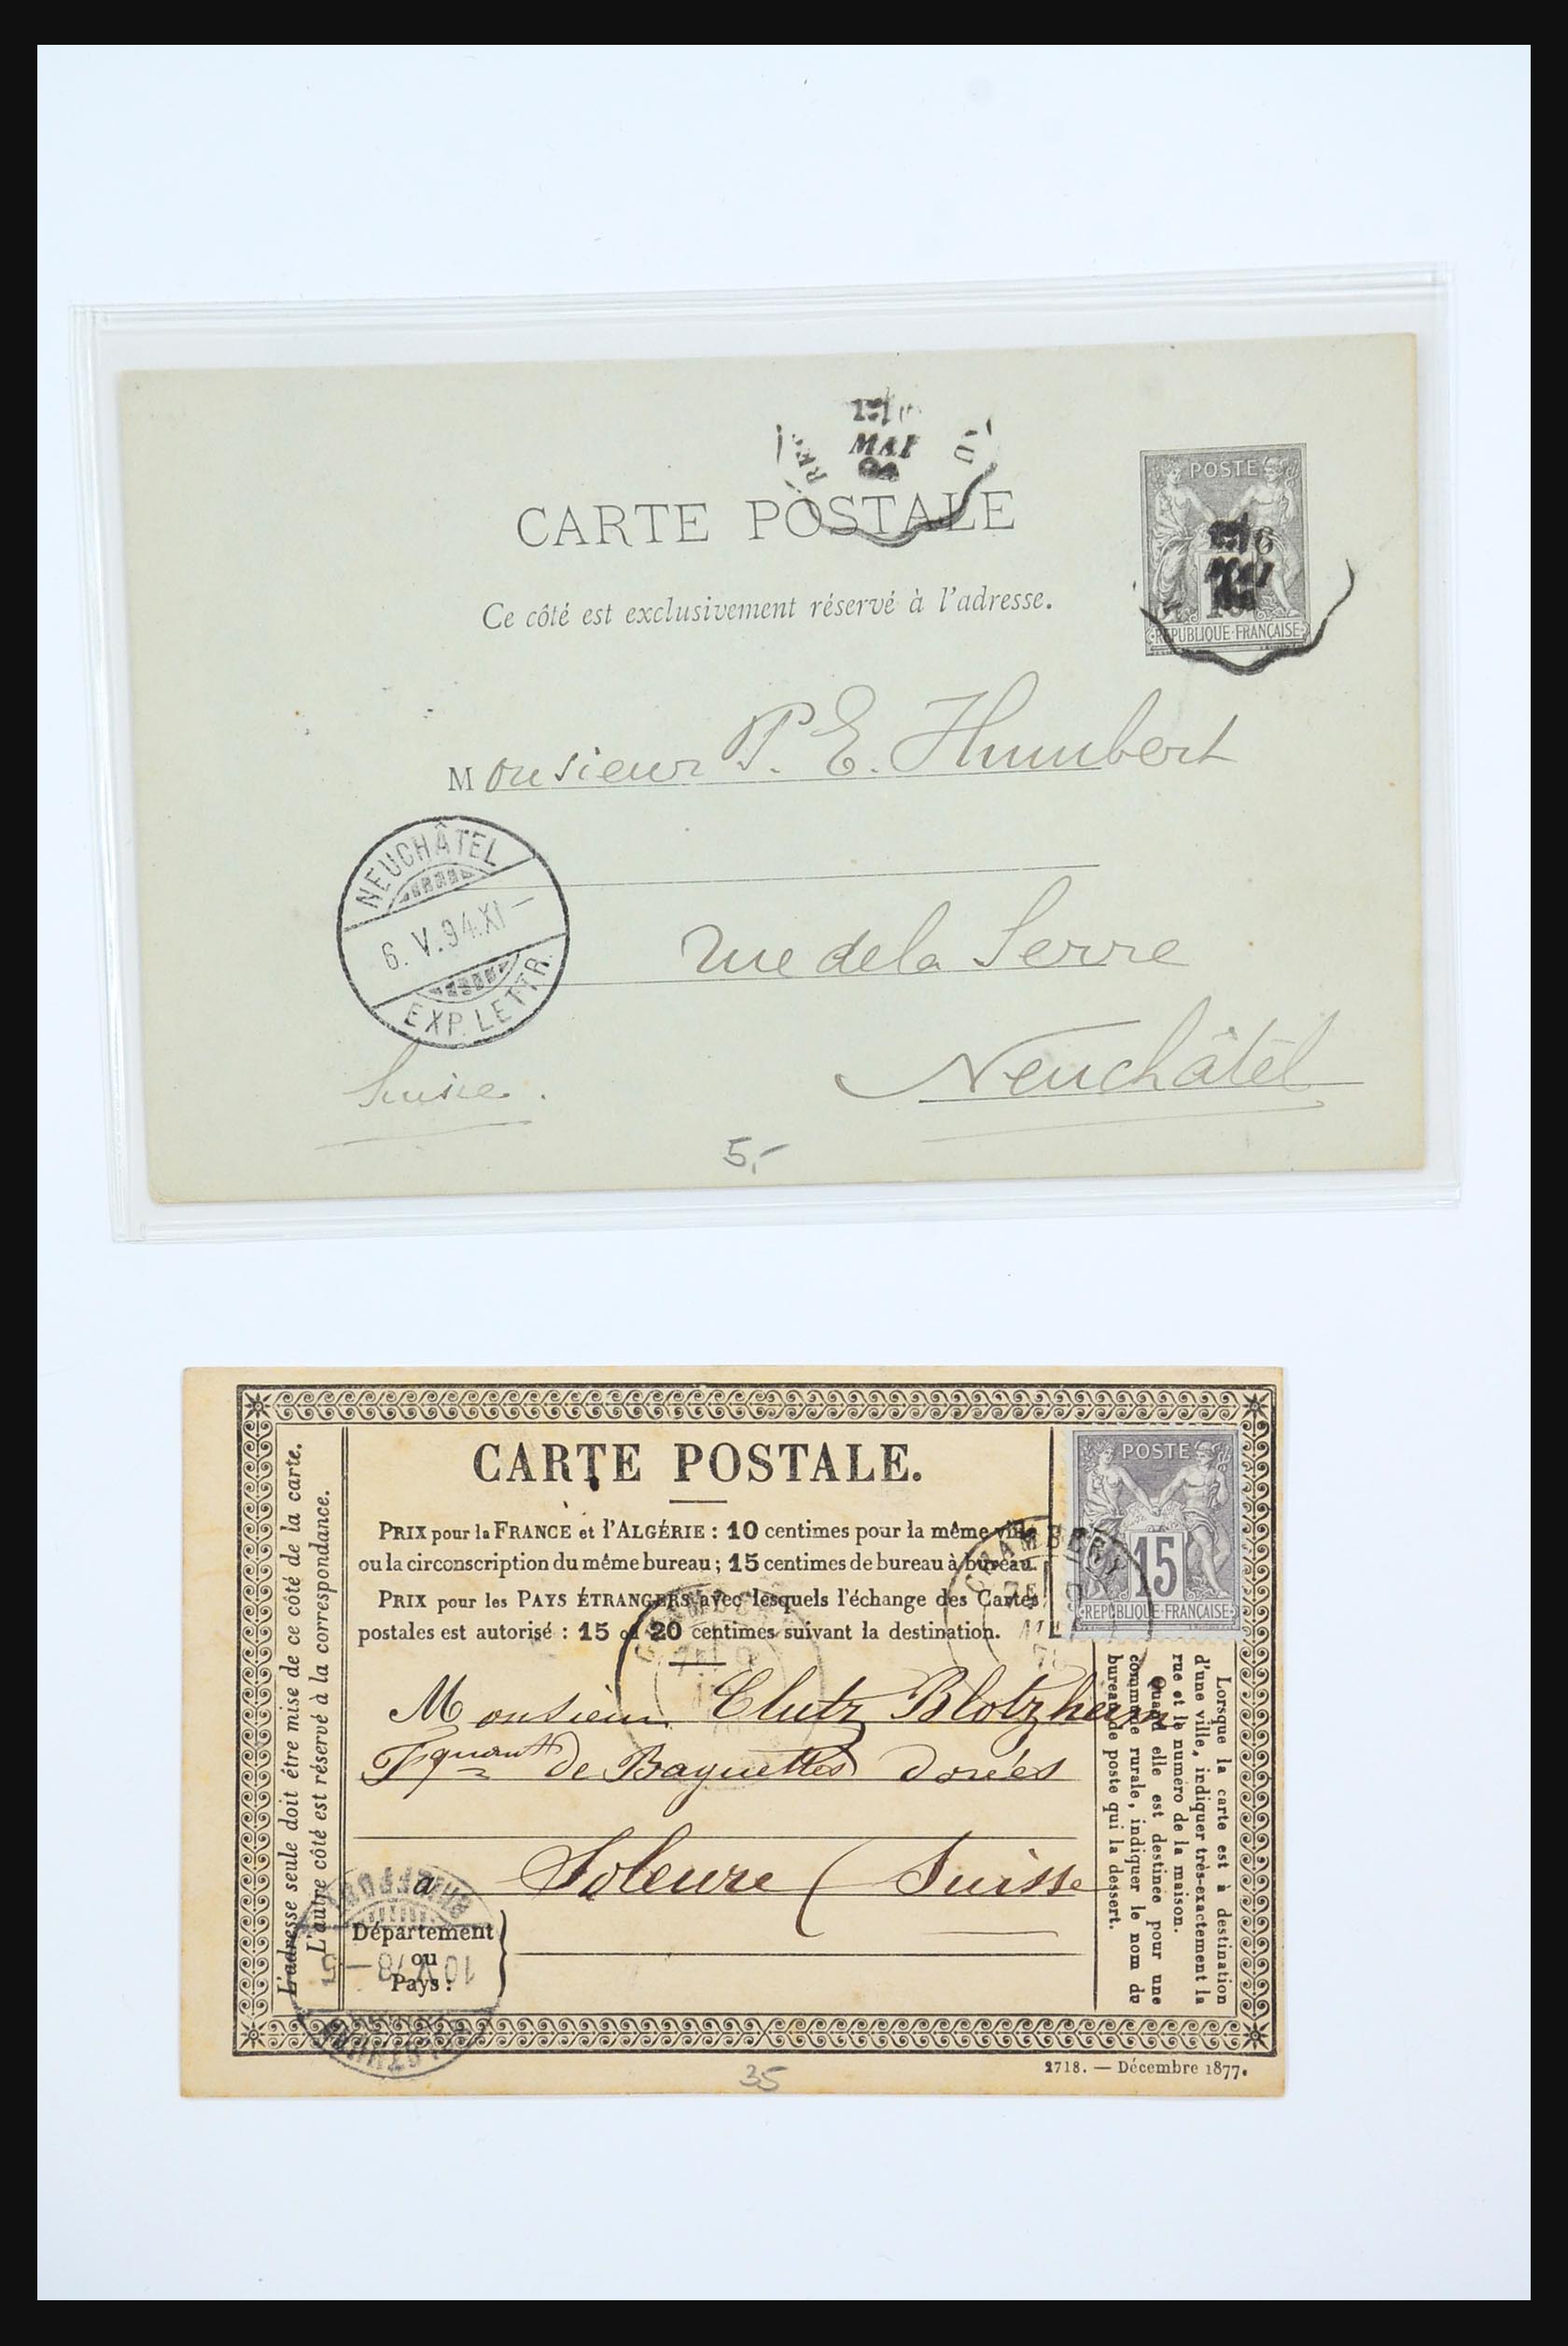 MAI
POSTE
CARTE POSTALE
Ce côté est exclusivement réservé à l'adresse.
RÉPUBLIQUE FRANÇAISE
Monsieur P. E. Humbert
NEUCHÂTEL
6. V. 94. XI –
EXP. LETTR.
rue de la Serre
Neuchâtel
Suisse.
5,-
CARTE POSTALE.
POSTE
15
RÉPUBLIQUE FRANÇAISE
PRIX pour la FRANCE et l'ALGÉRIE : 10 centimes pour la même ville
ou la circonscription du même bureau ; 15 centimes de bureau à bureau.
PRIX pour les PAYS ÉTRANGERS avec lesquels l'échange des Cartes
postales est autorisé : 15 ou 20 centimes suivant la destination.
CHAMBERY
Monsieur Blotzheim
de Baguettes dorées
Soleure (Suisse
a
Département
ou
Pays :
10 V 78 – 5
L'adresse seule doit être mise de ce côté de la carte.
L'autre côté est réservé à la correspondance.
Lorsque la carte est à destination
d'une ville, indiquer très-exactement la
rue et le numéro de la maison.
Quand elle est destinée pour une
commune rurale, indiquer le nom du
bureau de poste qui la dessert.
2718. — Décembre 1877.
35